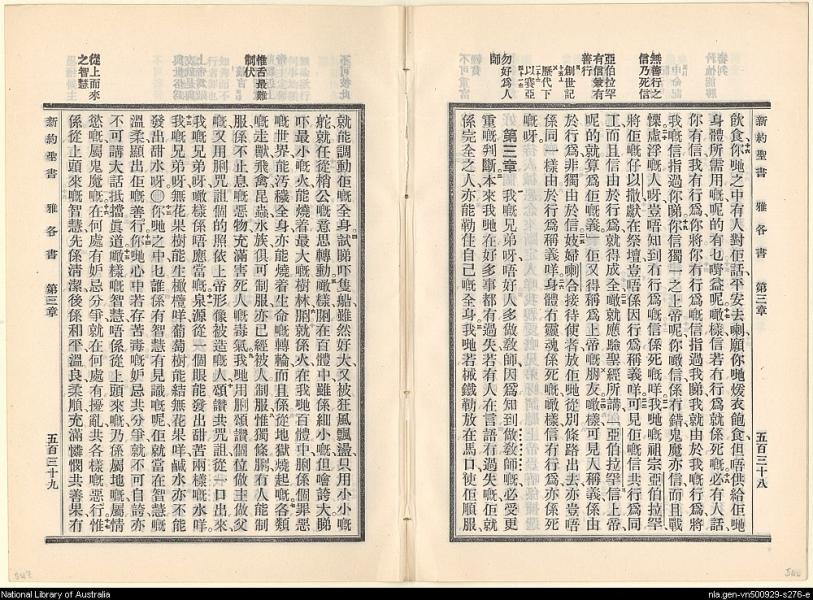 新約聖書 雅各書 第三章 五百三十八
無善行之
信乃死信
亞伯拉罕
有信兼有
善行
創世記
歷代下
以賽亞
勿好爲人
師
飲食你哋之中有人對佢話平安去喇願你哋煖衣飽食但唔供給佢哋
身體所需用嘅呢的有乜嘢益呢噉樣信若冇行爲就係死嘅必有人話
你有信我有行爲你將你冇行爲嘅信指過我睇我就由於我嘅行爲將
我嘅信指過你睇你信獨一之上帝呢你噉信係冇錯鬼魔亦信而且戰
慄虛浮嘅人呀豈唔知到冇行爲嘅信係死嘅咩我哋嘅祖宗亞伯拉罕
將佢嘅仔以撒獻在祭壇豈唔係因行爲稱義咩可見佢嘅信共行爲同
工而且信由於行爲就得成全噉就應驗聖經所講亞伯拉罕信上帝
呢的就算爲佢嘅義佢又得稱爲上帝嘅朋友噉樣可見人稱義係由
於行爲非獨由於信妓婦喇合接待使者放佢哋從別條路出去亦豈唔
係同一樣由於行爲稱義咩身體冇靈魂係死嘅噉樣信冇行爲亦係死
嘅呀
第三章 我嘅兄弟呀唔好人多做敎師因爲知到做敎師嘅必受更
重嘅判斷本來我哋在好多事都有過失若有人在言語冇過失嘅佢就
係完全之人亦能勒住自己嘅全身我哋若械鐵勒放在馬口使佢順服
惟舌最難
制伏
從上而來
之智慧
就能調動佢嘅全身試睇吓隻船雖然好大又被狂風飄盪只用小小嘅
舵就任從梢公嘅意思轉動噉樣脷在百體中雖係細小嘅但噲誇大睇
吓最小嘅火能燒着最大嘅樹林脷就係火在我哋百體中脷係個罪惡
嘅世界能汚穢全身亦能燒着生命嘅轉輪而且係從地獄燒起嘅各類
嘅走獸飛禽昆蟲水族俱可制服亦已經被人制服惟獨條脷冇人能制
服係不止息嘅惡物充滿害死人嘅毒氣我哋用脷頌讚個位做主做父
嘅又用脷咒詛個的照依上帝形像被造嘅人頌讚共咒詛從一口出來
我嘅兄弟呀噉樣係唔應當嘅泉源從一個眼能發出甜苦兩樣嘅水咩
我嘅兄弟呀無花果樹能生橄欖咩葡萄樹能結無花果咩鹹水亦不能
發出甜水呀〇你哋之中乜誰係有智慧有見識嘅呢佢就當在智慧嘅
溫柔顯出佢嘅善行你哋心中若存苦毒嘅妒忌共分爭就不可自誇亦
不可講大話抵擋眞道噉樣嘅智慧唔係從上頭來嘅乃係屬地嘅屬情
慾嘅屬鬼魔嘅在何處有妒忌分爭就在何處有擾亂共各樣嘅惡行惟
係從上頭來嘅智慧先係清潔後係和平溫良柔順充滿憐憫共善果冇
新約聖書 雅各書 第三章 五百三十九
National Library of Australia
nla.gen-vn500929-s276-e